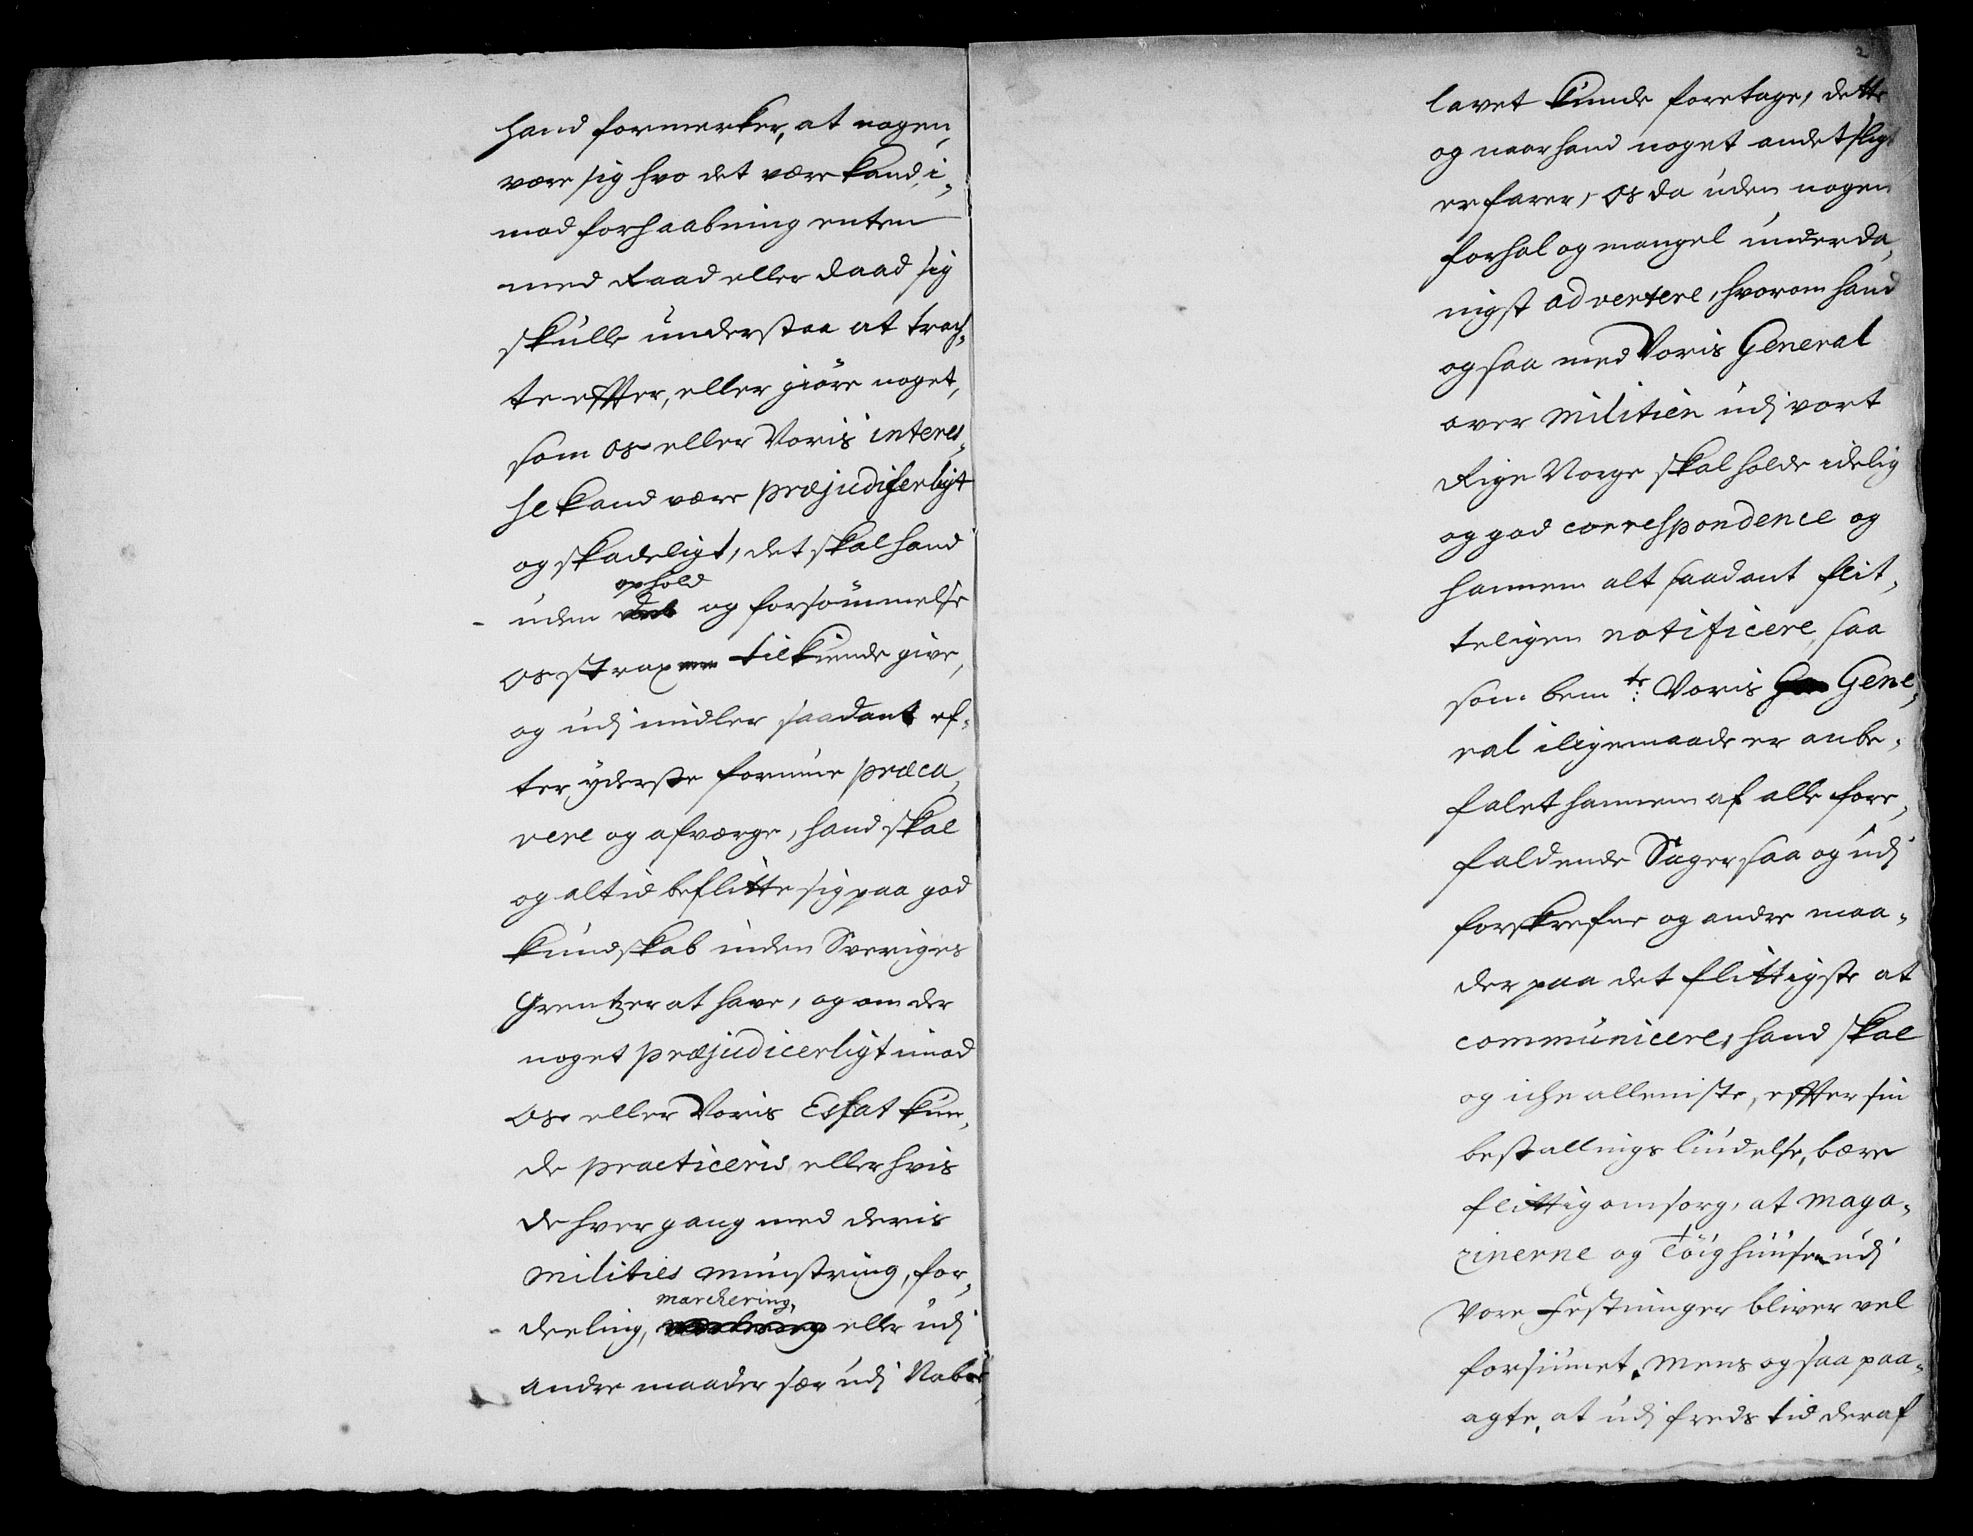 hand formerker, at nogen,
være sig hvo det være kand, i-
mod forhaabning enten
med Raad eller daad sig
skulle understaa at trach-
te effter, eller giöre noget,
som os eller Voris interes-
se kand være præjudicerligt
og skadeligt, det skal hand
ophold
uden og forsömmelse
os strax tilkiende give,
og udj midler saadant ef-
ter yderste formue præca-
vere og afværge, hand skal
og altid beflitte sig paa god
kundskab inden Sveriges
Grentzer at have, og om der
noget præjudicerligt imod
os eller Voris Estat kun-
de practiceris, eller hvis
de hver gang med deris
Milities münstring, for-
marchering,
deeling, eller udj
andre maader sær udj Nabo-
2
lavet kunde foretage, dette
og naar hand noget andet sligt
erfarer, os da uden nogen
forhal og mangel underda-
nigst advertere, hvorom hand
og saa med Voris General
over Militien udj vort
Rige Norge skal holde idelig
og god correspondence og
hannem alt saadant flit-
teligen notificere, saa
som bem:te Voris Gene-
ral iligemaade er anbe-
falet hannem af alle fore-
faldende Sager saa og udj
forskrefne og andre maa-
der paa det flittigste at
communicere, hand skal
og iche alleniste, effter sin
bestallings liudelse, bære
flittig omsorg, at maga-
zinerne og Töighuusen udj
Vore Festninger bliver vel
forsiunet, Mens og saa paa-
agte, at udj freds tid deraf